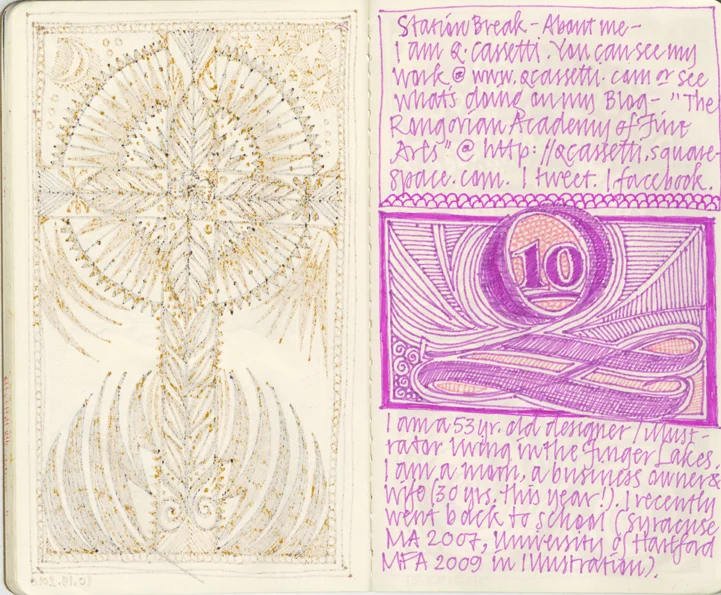 Station Break - About me -
I am Q. Cassetti. You can see my
work @ www.qcassetti.com or see
what's doing on my Blog - "The
Rongovian Academy of Fine
Arts" @ http://qcassetti.square-
space.com. I tweet. I facebook.
10
I am a 53 yr. old designer/illust-
rator living in the Finger Lakes.
I am a mom, a business owner &
wife (30 yrs. this year!). I recently
went back to school (Syracuse
MA 2007, University of Hartford
MFA 2009 in Illustration).